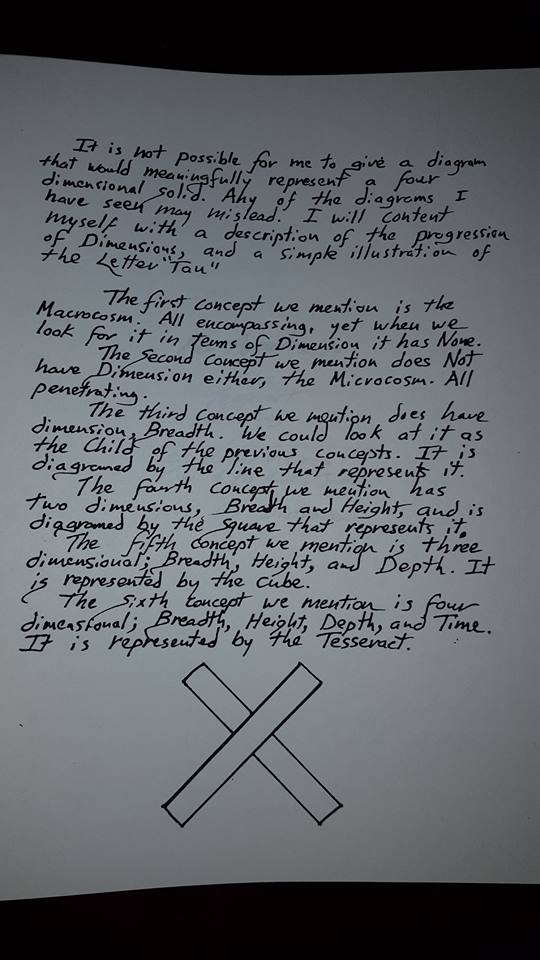 It is not possible for me to give a diagram
that would meaningfully represent a four
dimensional solid. Any of the diagrams I
have seen may mislead. I will content
myself with a description of the progression
of Dimensions, and a simple illustration of
the Letter "Tau"
The first concept we mention is the
Macrocosm. All encompassing, yet when we
look for it in terms of Dimension it has None.
The Second Concept we mention does Not
have Dimension either, the Microcosm. All
penetrating.
The third concept we mention does have
dimension, Breadth. We could look at it as
the Child of the previous concepts. It is
diagramed by the line that represents it.
The fourth concept we mention has
two dimensions, Breath and Height, and is
diagramed by the Square that represents it.
The fifth concept we mention is three
dimensional; Breadth, Height, and Depth. It
is represented by the cube.
The Sixth concept we mention is four
dimensional; Breadth, Height, Depth, and Time.
It is represented by the Tesseract.